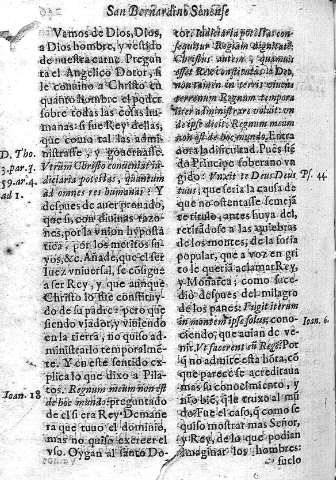 San Bernardino Senense
Vemos de Dios, Dios,
a Dios hombre, y vestido
de nuestra carne. Pregun
ta el Angelico Dotor, si
le conuino a Christo en
quanto hombre el poder
sobre todas las cosas hu
manas: si fue Rey dellas,
que como tal las admi
nistrasse, y gouernasse.
Vtrum Christo conueniat iu
diciaria potestas, quantum
ad omnes res humanas? Y
despues de auer prouado,
que si, con diuinas razo
nes, por la vnion hyposta
tica, por los meritos su
yos, &c. Añade, que el ser
Iuez vniuersal, se cõsigue
a ser Rey, y que aunque
Christo lo fue constituy-
do de su padre: pero que
siendo viador, y viuiendo
en la tierra, no quiso ad
ministrarlo temporalmẽ-
te. Y en este sentido ex-
plica lo que dixo a Pila-
tos. Regnum meum non est
de hoc mundo: preguntado
de el si era Rey. Demane
ra que tuuo el dominio,
mas no quiso exercer el
vso. Oygan al santo Do-
D. Tho.
3. par. q.
59. ar. 4.
ad 1.
Ioan. 18
tor. Iudiciaria potestas con-
sequitur Regiam dignitatẽ.
Christus autem, quamuis
esset Rex constitutus à Deo,
non tamen in terris viuens
terrenum Regnum tempora
liter administrare voluit: vn
de ipse dicit: Regnum meum
non est de hoc mundo. Entra
aora la dificultad. Pues siẽ
do Principe soberano vn
gido: Vnxit te Deus Deus
tuus; que seria la causa de
que no ostentasse semejã
te titulo, antes huya del,
retirãdose a las quiebras
de los montes, de la fossa
popular, que a voz en gri
to le queria aclamar Rey,
y Monarca; como suce-
dio despues del milagro
de los panes: Fugit iterum
in montem ipse solus, cono-
ciendo, que auian de ve-
nir. Vt facerent eũ Regẽ. Por
que no admite esta hõra, cõ
que parece se acreditaua
mas su conocimiento, y
no solo
mũdo. Fue el caso, que como se
quiso mostrar mas Señor,
y Rey, de lo que podian
imaginar los hombres:
suelo
Ps. 44
Ioan. 6.